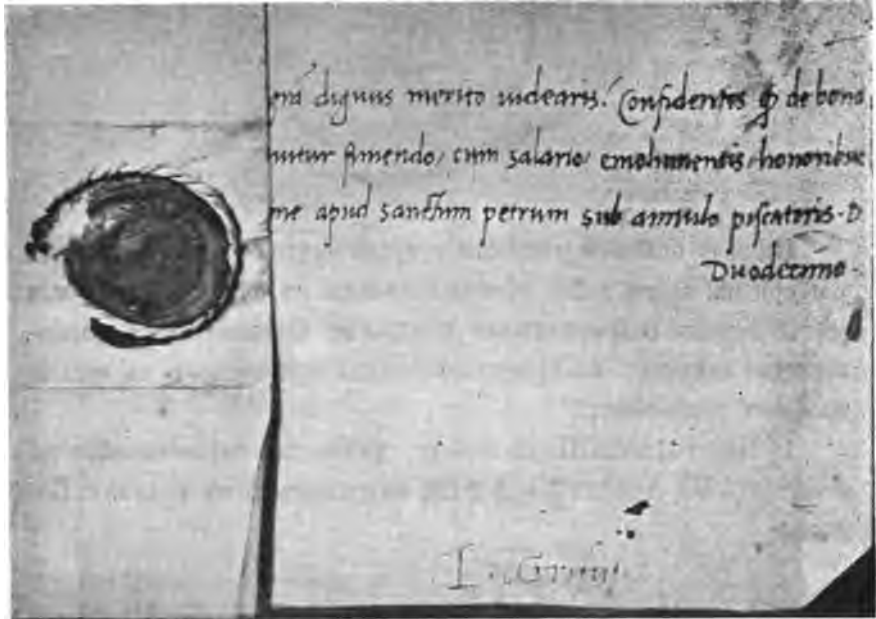 dignus merito uidearis. Confidentes ꝙ de bono
cum salario emolumentis honoribus
me apud sanctum petrum sub annulo piscatoris. D
Duodecimo.